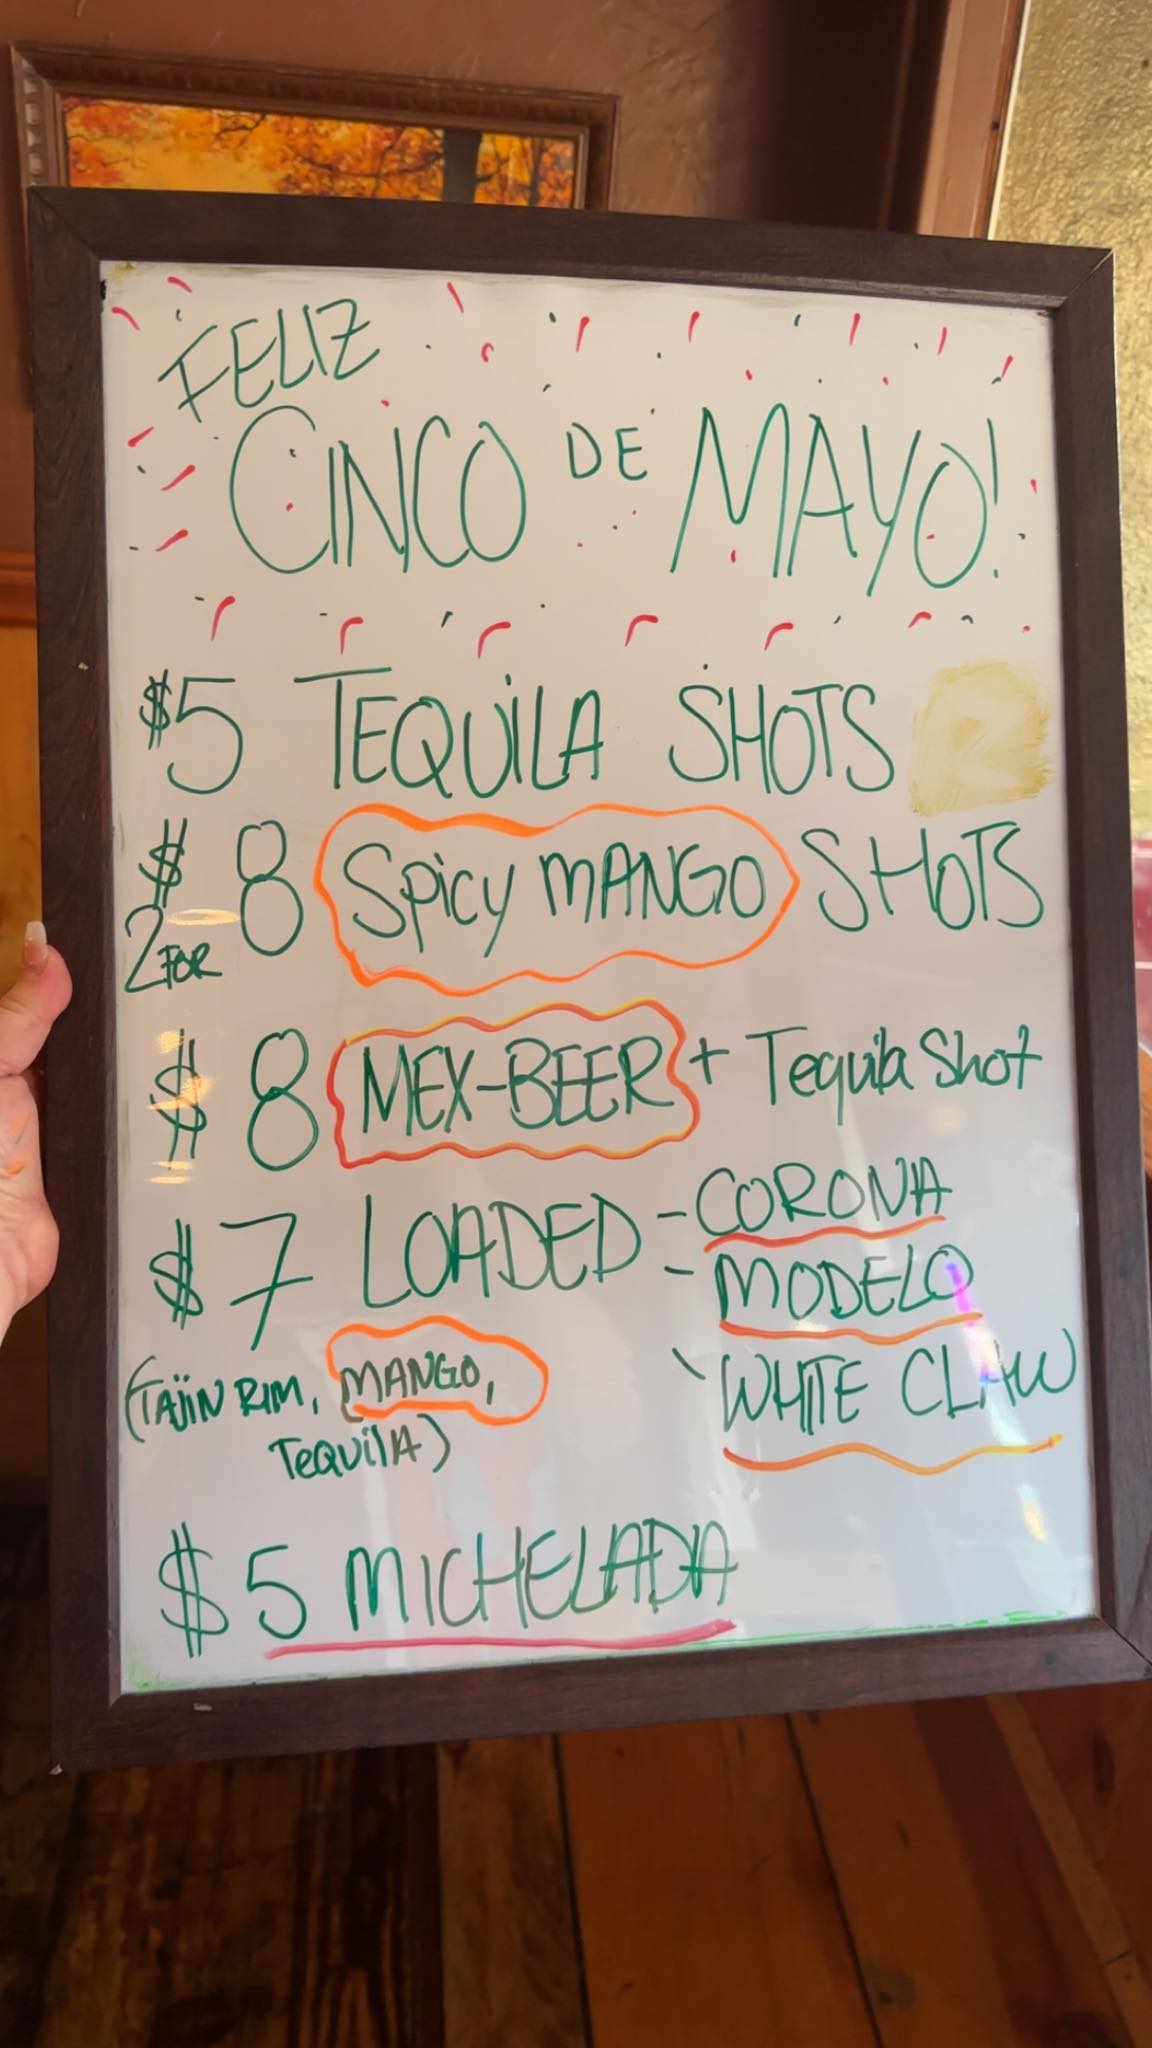 FELIZ
CINCO DE MAYO!
$5 TEQUILA SHOTS
$8 SPICY MANGO SHOTS
2 FOR
$8 MEX-BEER + Tequila Shot
$7 LOADED - CORONA
- MODELO
- WHITE CLAW
(TAJIN RIM, MANGO,
TEQUILA)
$5 MICHELADA